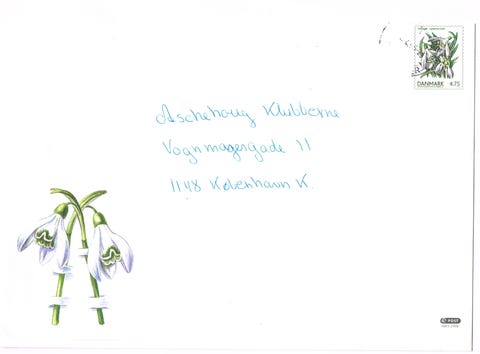 DANMARK 4.75
Aschehoug Klubberne
Vognmagergade 11
1148 København K.
POST